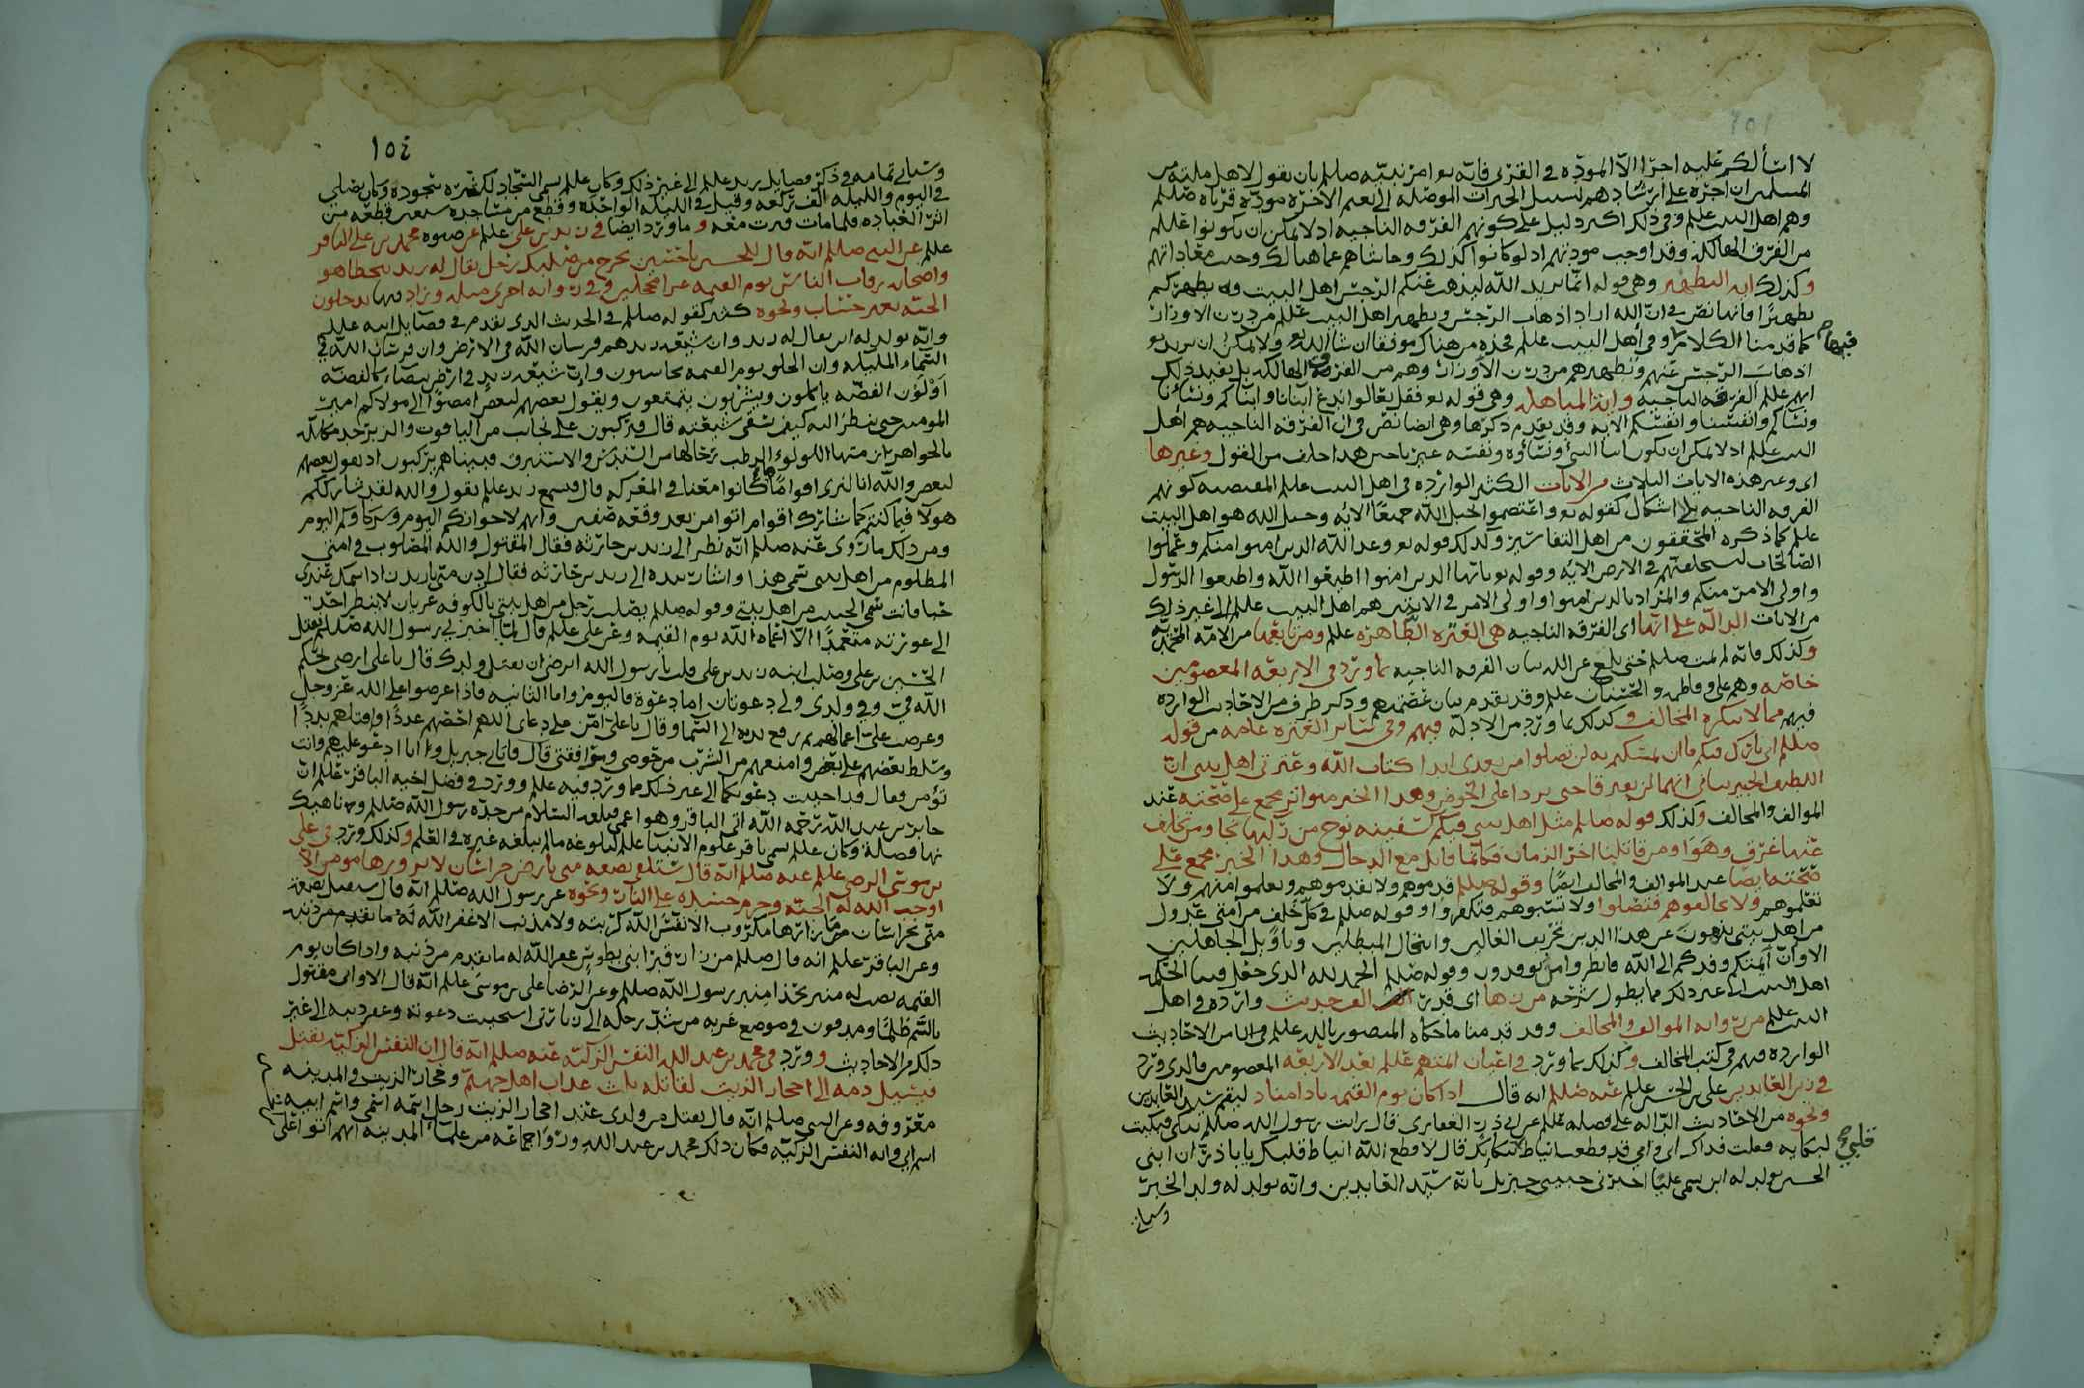 لا اسألكم عليه اجرا الا المودة في القربى فانه تع امر نبيه صللم بان يقول لاهل ملته من
المسلمين ان اجره على ارشادهم لسبيل الخيرات الموصله الى نعيم الآخرة مودة قرباه صللم
وهم اهل البيت عللم وفي ذلك اكبر دليل على كونهم الفرقه الناجيه اذ لا يمكن ان يكونوا عللم
من الفرق الهالكه وقد اوجب مودتهم اذ لو كانوا كذلك وحاشاهم عما هنالك وجب معاداتهم
وكذلك اية التطهير وهي قوله انما يريد الله ليذهب عنكم الرجس اهل البيت ويطهركم
تطهيرا فانها نص في ان الله اراد اذهاب الرجس وتطهير اهل البيت عللم من درن الاوزار
كما قدمنا الكلام في اهل البيت عللم فخذه من هناك موفقا ان شا الله تع ولا يمكن ان يريد تع
فيها
اذهاب الرجس عنهم وتطهيرهم من درن الاوزار وهم من الفرق الهالكه بل يفيد ذلك
انهم عللم الفرقه الناجيه واية المباهله وهي قوله تع فقل تعالوا ندع ابنانا وابناكم ونسانا
ونساكم وانفسنا وانفسكم الايه وقد تقدم ذكرها وهي ايضا نص في ان الفرقه الناجيه هم اهل
البيت عللم اذ لا يمكن ان يكون ابنا النبي ونساؤه ونفسه غير ناجين هذا خلف من القول وغيرها
اي وغير هذه الايات الثلاث من الايات الكثير الوارده في اهل البيت عللم المقتضيه كونهم
الفرقه الناجيه بلا اشكال كقوله تع واعتصموا بحبل الله جميعا الايه وحبل الله هو اهل البيت
عللم كما ذكره المحققون من اهل التفاسير وكذلك قوله تع وعد الله الذين امنوا منكم وعملوا
الصالحات ليستخلفنهم في الارض الايه وقوله تع ياايها الذين امنوا اطيعوا الله واطيعوا الرسول
واولي الامر منكم والمراد بالذين امنوا واولي الامر في الايتين هم اهل البيت عللم الى غير ذلك
من الايات الداله على انها اي الفرقه الناجيه هي العتره الطاهره عللم ومن تابعها من الامه المحمديه
وكذلك فانه لم يمت صللم حتى بلغ عن الله بيان الفرقه الناجيه بما ورد في الاربعه المعصومين
خاصه وهم علي وفاطمه والحسنان عللم وقد تقدم بيان عصمتهم وذكر طرف من الاحاديث الوارده
فيهم مما لا ينكره المخالف وكذلك بما ورد من الادله فيهم وفي سائر العتره عامه من قوله
صللم اني تارك فيكم ما ان تمسكتم به لن تضلوا من بعدي ابدا كتاب الله وعترتي اهل بيتي ان
اللطيف الخبير نباني انهما لن يفترقا حتى يردا علي الحوض وهذا الخبر متواتر مجمع على صحته عند
الموالف والمخالف وكذلك قوله صللم مثل اهل بيتي فيكم كسفينه نوح من ركبها نجا ومن تخلف
عنها غرق وهوا ومن قاتلنا اخر الزمان فكانما قاتل مع الدجال وهذا الخبر مجمع على
صحته ايضا عند الموالف والمخالف ايضا وقوله صللم قدموهم ولا تقدموهم وتعلموا منهم ولا
تعلموهم ولا تخالفوهم فتضلوا ولا تشتموهم فتكفروا وقوله صللم في كل خلف من امتي عدول
من اهل بيتي ينفون عن هذا الدين تحريف الغالين وانتحال المبطلين وتاويل الجاهلين
الا وان ائمتكم وفدكم الى الله فانظروا من توفدون وقوله صللم الحمد لله الذي جعل فينا الحكمه
اهل البيت الى غير ذلك مما يطول شرحه من زها اي قدر الف حديث وارده في اهل
البيت عللم من رواية الموالف والمخالف وقد قدمنا ما حكاه المنصور بالله عللم في الشافي من الاحاديث
الوارده فيهم في كتب المخالف وكذلك بما ورد في اعيان ائمتهم عللم بعد الاربعه المعصومين فالذي ورد
في زين العابدين علي بن الحسين عللم عنه صللم انه قال اذا كان يوم القيمه نادا مناد ليقم سيد العابدين
ونحوه من الاحاديث الداله على فضله عللم عن ابي ذر الغفاري قال رايت رسول الله صللم يبكي فبكيت
لبكايه فقلت فداك ابي وامي قد قطعت انياط لبكائك قال لا قطع الله انياط قلبك يابا ذر ان ابني
قلبي صح
الحسين يولد له ابن يسمى عليا اخبرني حبيبي جبريل بانه سيد العابدين وانه يولد له ولد الخبر
وسياتي
١٥٤
وسياتي تمامه في ذكر فضايل زيد عللم الى غير ذلك وكان عللم يسمى السجاد لكثرة سجوده وكان يصلي
في اليوم والليله الف ركعه وقيل في الليله الواحده وقطع من مساجده سبعين قطعه من
اثر العباده فلما مات قبرت معه وما ورد ايضا في زيد بن علي عللم عن صنوه محمد بن علي الباقر
عللم عن النبي صللم انه قال للحسين يا حسين يخرج من صلبك رجل يقال له زيد يتخطا هو
واصحابه رقاب الناس يوم القيمه غرا محجلين وفي روايه اخرى مثله وزاد فيها يدخلون
الجنه بغير حساب ونحوه كثير كقوله صللم في الحديث الذي تقدم في فضايل ابيه عللم
وانه يولد له ابن يقال له زيد وان شيعة زيد هم فرسان الله في الارض وان فرسان الله في
السماء الملايكه وان الخلق يوم القيمه يحاسبون وان شيعة زيد في ارض بيضاء كالفضه
او كلون الفضه ياكلون ويشربون يتمتعون ويقول بعضهم لبعض امضوا الى مولاكم امير
المومنين حتى ننظر اليه كيف يسقي شيعته قال فيركبون على نجائب من الياقوت والزبرجد مكلله
بالجواهر ازمتها اللولؤ الرطب رحالها من السندس والاستبرق فبيناهم يركبون اذ يقول بعضهم
لبعض والله انا لنرى اقواما ما كانوا معنا في المعركه قال فيسمع زيد عللم فيقول والله لقد شارككم
هولا فيما كنتم كما شارك اقوام اتوا من بعد وقعة صفين وانهم لاخوانكم اليوم وشركاؤكم اليوم
ومن ذلك ما روي عنه صللم انه نظر الى زيد بن حارثه فقال المقتول في الله المصلوب في امتي
المظلوم من اهل بيتي سمي هذا واشار بيده الى زيد بن حارثه فقال ادن مني يا زيد زاد اسمك عندي
حبا فانت سمي الحبيب من اهل بيتي وقوله صللم يصلب رجل من اهل بيتي بالكوفه عريان لا ينظر احد
الى عورته متعمدا الا اعماه الله يوم القيمه وعن علي عللم قال لما اخبرني رسول الله صللم بقتل
الحسين بن علي وصلب ابنه زيد بن علي قلت يا رسول الله اترضى ان يقتل ولدك قال يا علي ارضى بحكم
الله في وفي ولدي ولي دعوتان اما دعوة فاليوم واما الثانيه فاذا عرضوا على الله عز وجل
وعرضت علي اعمالهم ثم رفع يديه الى السما وقال يا علي امن على دعاي اللهم احصهم عددا واقتلهم بددا
وسلط بعضهم على بعض وامنعهم من الشرب من حوضي ومرافقتي قال فاتاني جبريل وانا ادعو عليهم وانت
تؤمن فقال قد اجيبت دعوتكما الى غير ذلك مما ورد فيه عللم وورد في فضل اخيه الباقر عللم ان
جابر بن عبد الله رحمه الله اتى الباقر وهو اعمى فبلغه السلام من جده رسول الله صللم وناهيك
بها فضيله وكان عللم يسمى باقر علوم الانبيا عللم لبلوغه ما لم يبلغه غيره في العلم وكذلك ورد في علي
بن موسى الرضى عللم عنه صللم انه قال ستلقى بضعه مني بارض خراسان لا يزورها مومن الا
اوجب الله له الجنه وحرم جسده على النار ونحوه عن رسول الله صللم انه قال ستقتل بضعه
مني بخراسان ما زارها مكروب الا نفس الله كربته ولا مذنب الا غفر الله له ما تقدم من ذنبه
وعن الباقر عللم انه قال صللم من زار قبر ابني بطوس غفر الله له ما تقدم من ذنبه واذا كان يوم
القيمه نصب له منبر بحذا منبر رسول الله صللم وعن الرضا علي بن موسى عللم انه قال الا واني مقتول
بالسم ظلما ومدفون في موضع غربه من شد رحله الى زيارتي استجيبت دعوته وغفر ذنبه الى غير
ذلك من الاحاديث وورد في محمد بن عبد الله النفس الزكيه عنه صللم انه قال ان النفس الزكيه يقتل
فيسيل دمه الى احجار الزيت لقاتله ثلث عذاب اهل جهنم وحجار الزيت في المدينه
معروفه وعن النبي صللم انه قال يقتل من ولدي عند احجار الزيت رجل اسمه اسمي واسم ابيه
اسم ابي وانه النفس الزكيه فكان ذلك محمد بن عبد الله وروا جماعه من علماء المدينه انهم اتوا على